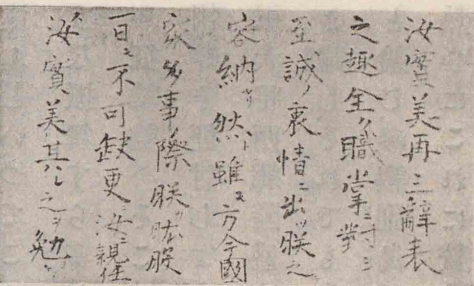 汝實美再三辭表
之趣全ク職掌ニ對シ
至誠ノ衷情ニ出ツ朕之
容納セリ然ト雖モ方今國
家多事ノ際朕カ肱股
一日モ不可缺更ニ汝ニ親任
ス汝實美其レ之ヲ勉メヨ